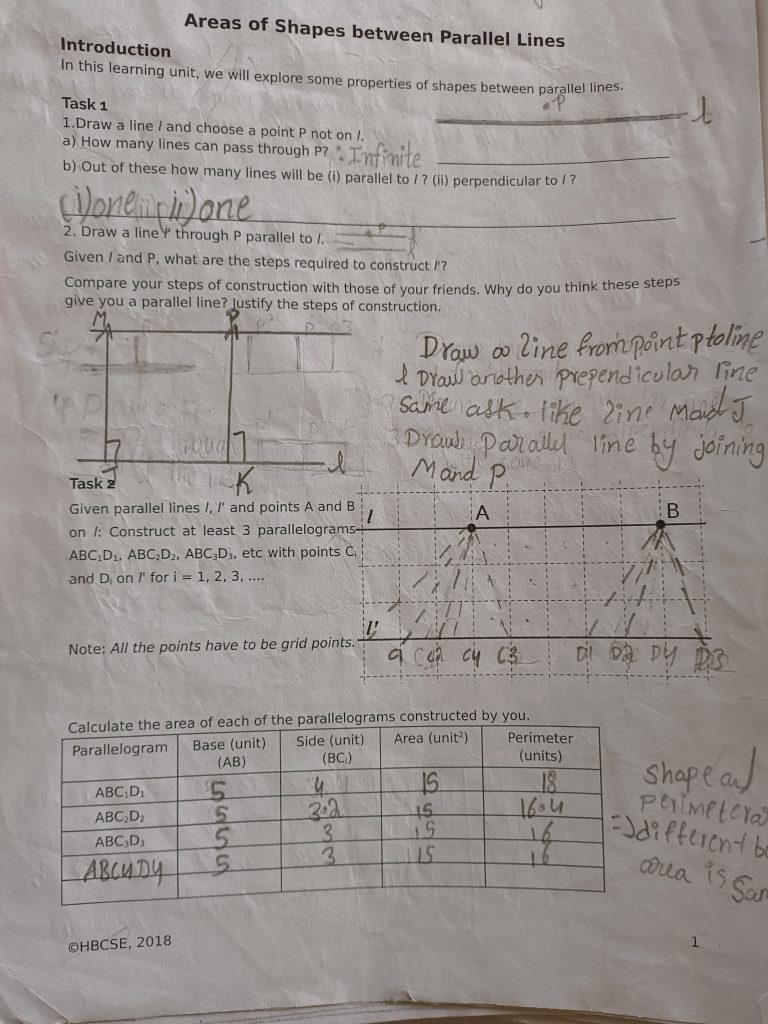 Areas of Shapes between Parallel Lines
Introduction
In this learning unit, we will explore some properties of shapes between parallel lines.
Task 1
.P
l
1.Draw a line l and choose a point P not on l.
a) How many lines can pass through P? : Infinite
b) Out of these how many lines will be (i) parallel to l ? (ii) perpendicular to l ?
(i)one (ii)one
2. Draw a line l' through P parallel to l.
Given l and P, what are the steps required to construct l'?
Compare your steps of construction with those of your friends. Why do you think these steps
give you a parallel line? Justify the steps of construction.
M P
J K l
Draw a line from point p to line
l Draw another prependicular line
Same ask. like line M and J
Draw Parallel line by joining
M and P
Task 2
Given parallel lines l, l' and points A and B
on l: Construct at least 3 parallelograms
ABC₁D₁, ABC₂D₂, ABC₃D₃, etc with points Cᵢ
and Dᵢ on l' for i = 1, 2, 3, ....
Note: All the points have to be grid points.
l A B
l'
C1 C2 C4 C3 D1 D2 D4 D3
Calculate the area of each of the parallelograms constructed by you.
Parallelogram Base (unit) (AB) Side (unit) (BCᵢ) Area (unit²) Perimeter (units)
ABC₁D₁ 5 4 15 18
ABC₂D₂ 5 3.2 15 16.4
ABC₃D₃ 5 3 15 16
ABC4D4 5 3 15 16
shape and
perimeter
=> different
area is
©HBCSE, 2018
1